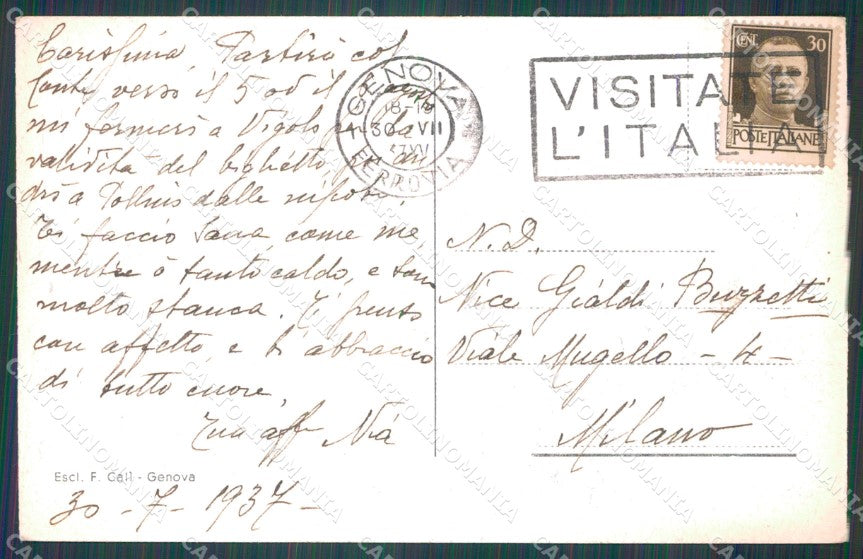 Carissima, Partirò col
Conte verso il 5 od il
mi fermerò a Vigolo per la
validità del biglietto,
drò a dalle nipoti.
Ti faccio sana come me,
mentre ò tanto caldo, e son
molto stanca. Ti penso
con affetto e ti abbraccio
di tutto cuore,
Tua aff Nià
Escl. F. Calì - Genova
30 - 7 - 1937 -
GENOVA
18-19
30 VII
37 XV
FERROVIA
VISITATE
L'ITALIA
CENT. 30
POSTE ITALIANE
N. D.
Nice Gialdi Buzzetti
Viale Mugello - 4 -
Milano
CARTOLINOMANIA